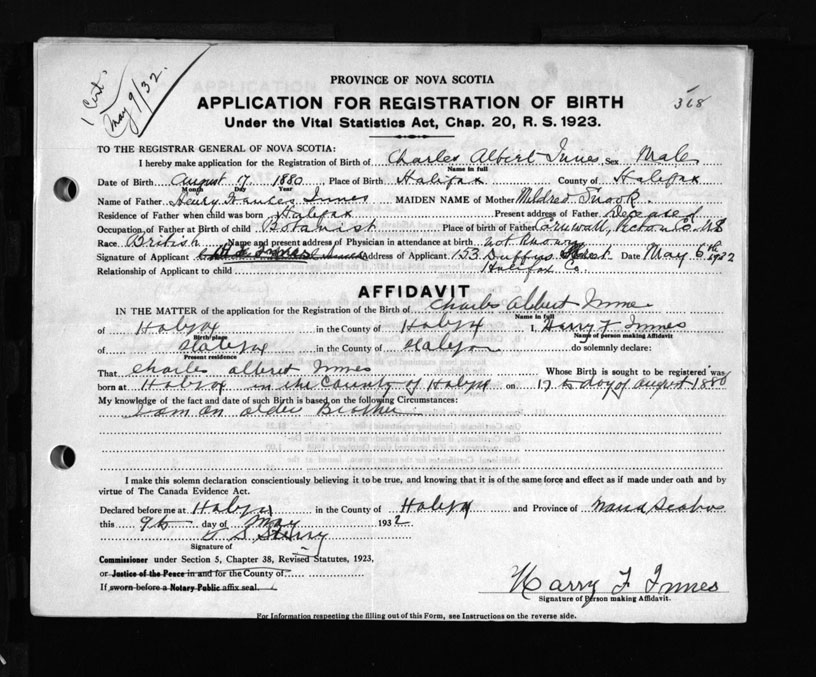 1 Cert.
May 9/32.
PROVINCE OF NOVA SCOTIA
APPLICATION FOR REGISTRATION OF BIRTH
368
Under the Vital Statistics Act, Chap. 20, R. S. 1923.
TO THE REGISTRAR GENERAL OF NOVA SCOTIA:
I hereby make application for the Registration of Birth of Charles Albert Innes Sex Male
Name in full
Date of Birth August 17 1880 Place of Birth Halifax County of Halifax
Month Year
Name of Father Henry Frances Innes MAIDEN NAME of Mother Mildred Snook
Residence of Father when child was born Halifax Present address of Father Deceased
Occupation of Father at Birth of child Botanist Place of birth of Father
Race British Name and present address of Physician in attendance at birth not Known
Signature of Applicant Address of Applicant 153 Duffus Street Date May 6th 1932
Relationship of Applicant to child Halifax Co.
AFFIDAVIT
IN THE MATTER of the application for the Registration of the Birth of Charles Albert Innes
Name in full
of Halifax in the County of Halifax I, Harry F Innes
Birth place Name of person making Affidavit
of Halifax in the County of Halifax do solemnly declare:
Present residence
That Charles albert Innes Whose Birth is sought to be registered was
born at Halifax in the County of Halifax on 17th day of August 1880
My knowledge of the fact and date of such Birth is based on the following Circumstances:
I am an older Brother
I make this solemn declaration conscientiously believing it to be true, and knowing that it is of the same force and effect as if made under oath and by
virtue of The Canada Evidence Act.
Declared before me at Halifax in the County of Halifax and Province of Nova Scotia
this 9th day of May 1932
Signature of
Commissioner under Section 5, Chapter 38, Revised Statutes, 1923,
or Justice of the Peace in and for the County of
If sworn before a Notary Public affix seal.
Harry F Innes
Signature of Person making Affidavit.
For Information respecting the filling out of this Form, see Instructions on the reverse side.